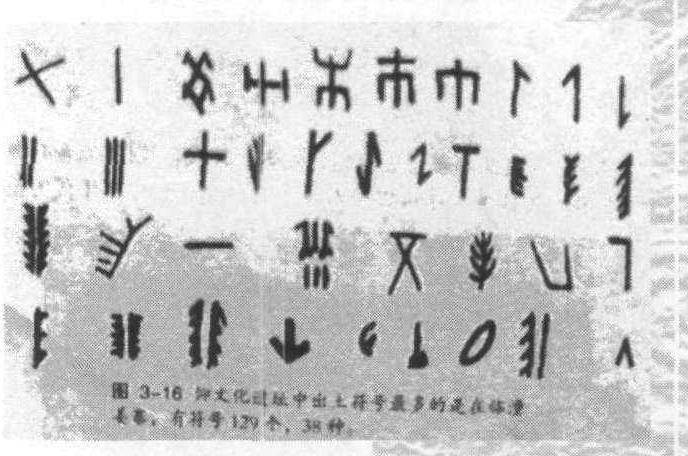 图 3-16 仰文化遗址中出土符号最多的是在临潼
姜寨，有符号129个，38种。